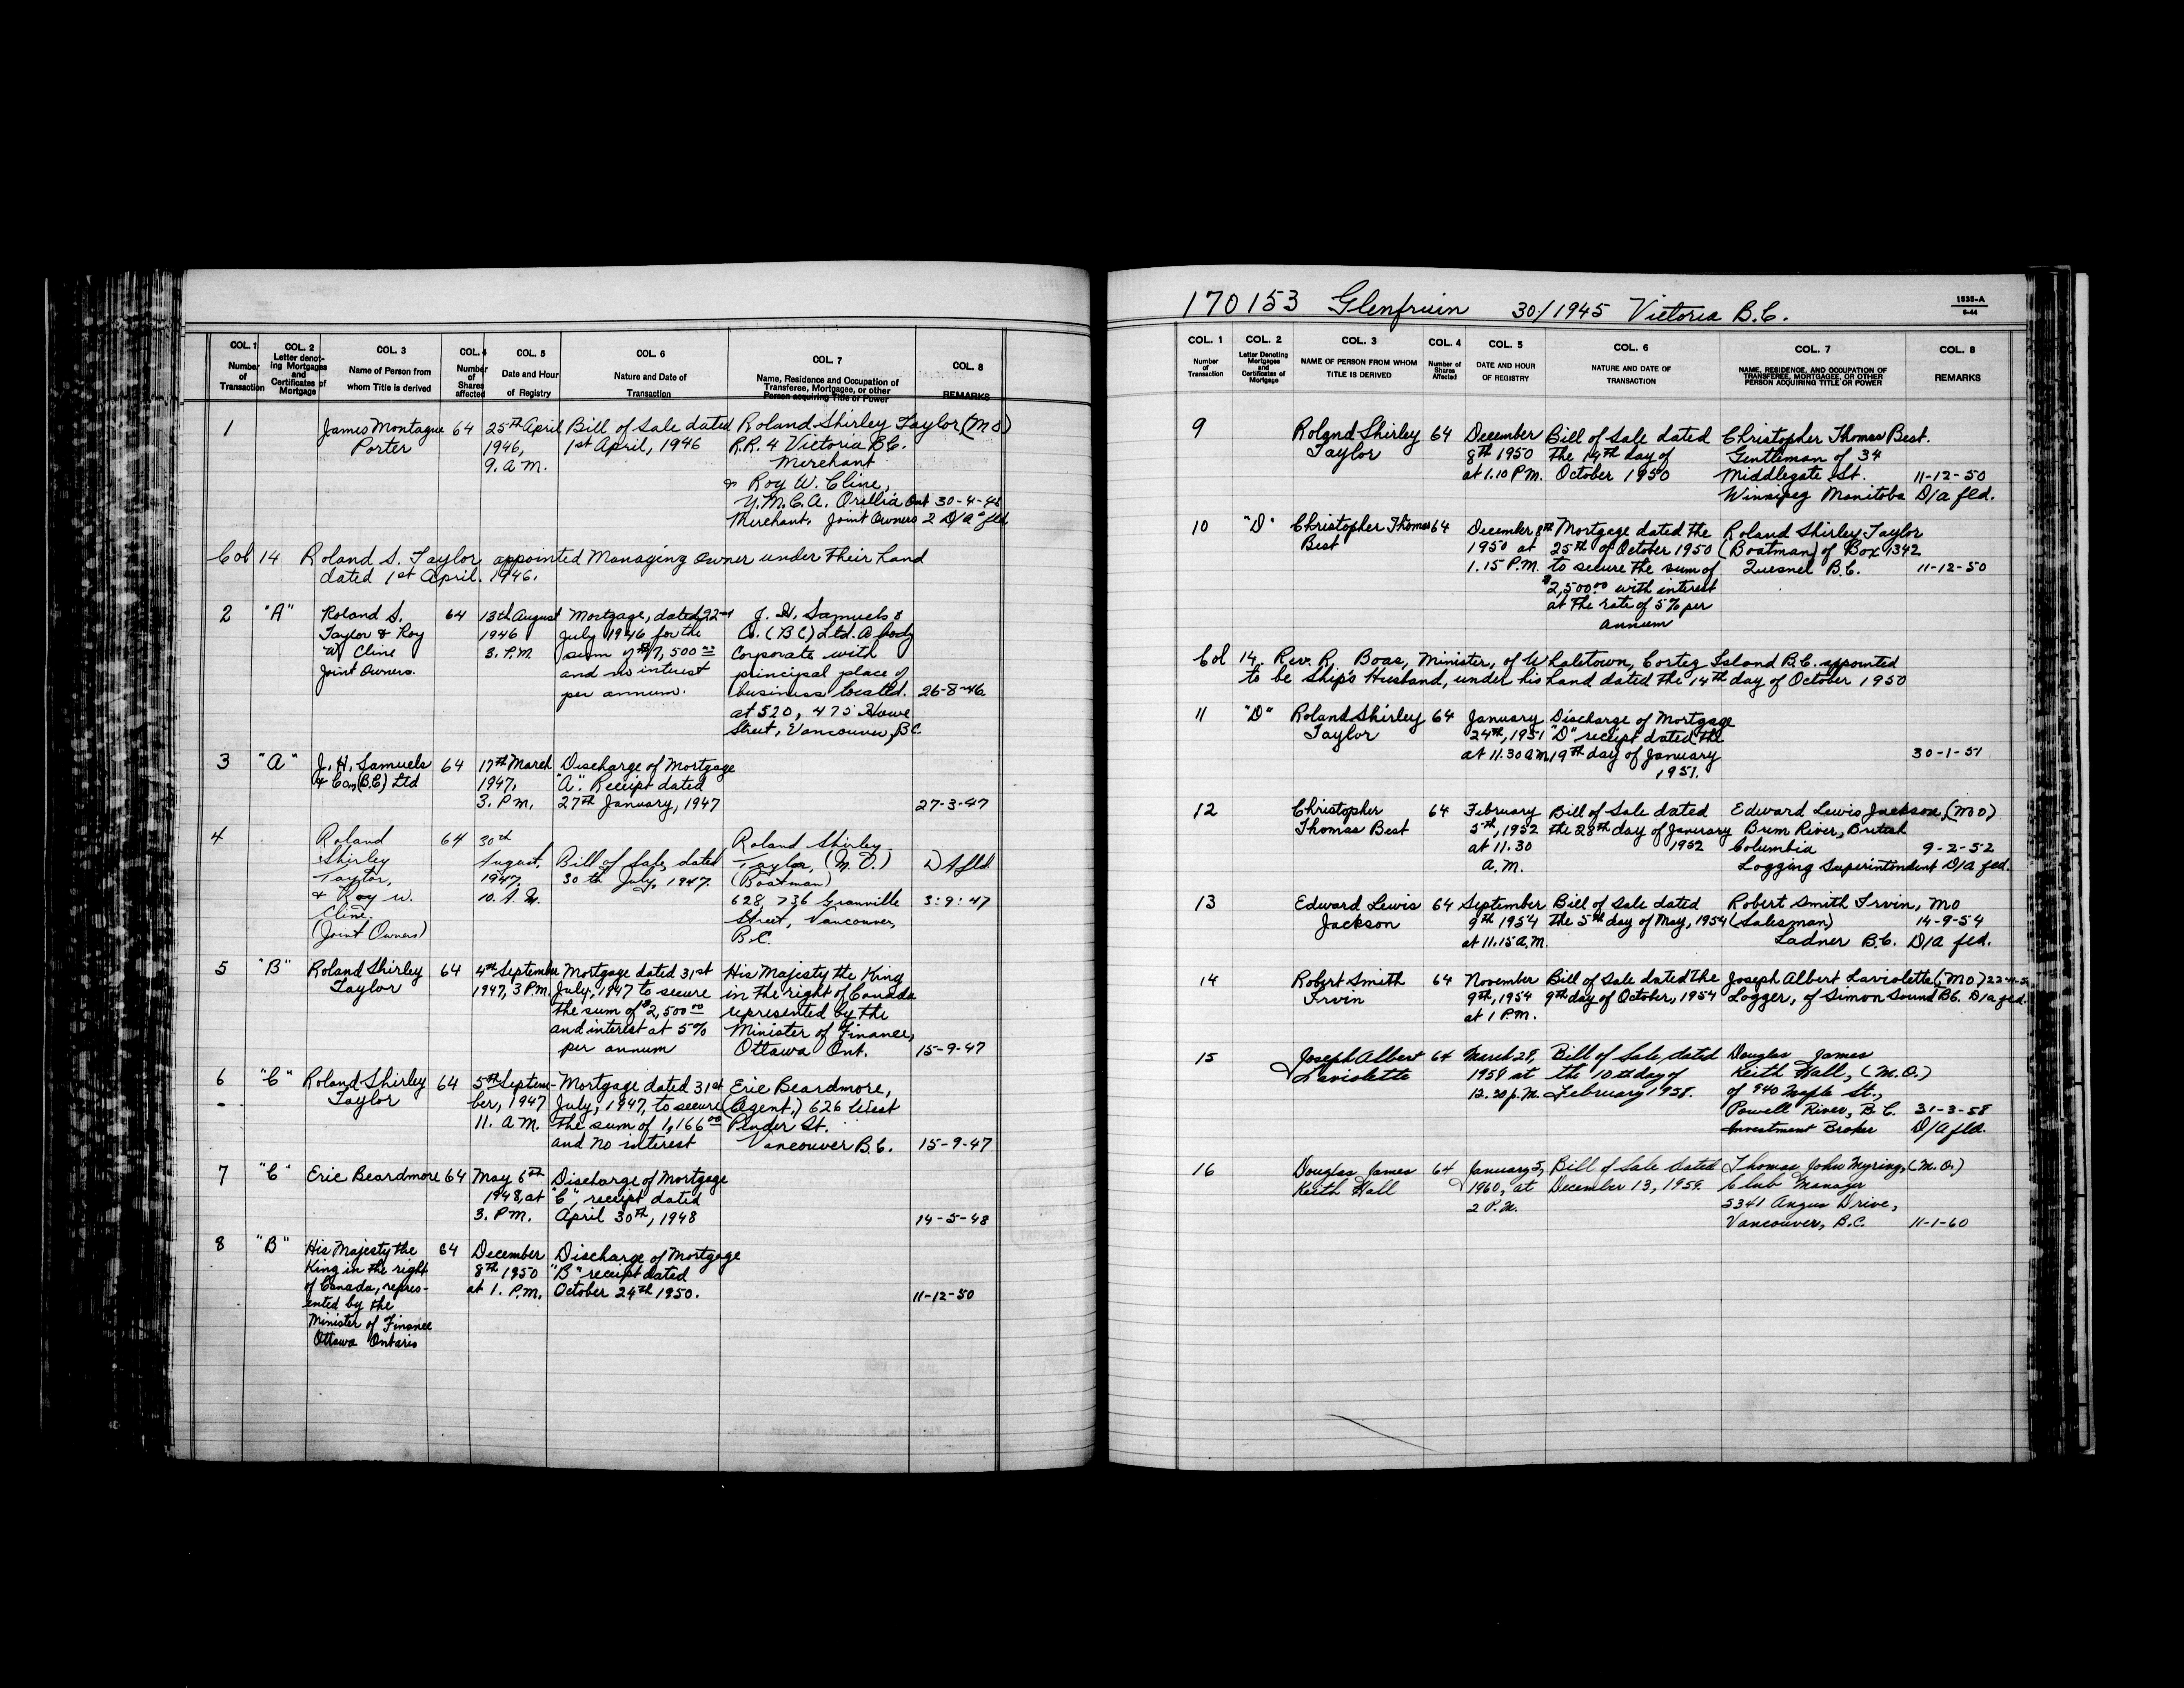 COL. 1 COL. 2 COL. 3 COL. 4 COL. 5 COL. 6 COL. 7 COL. 8
Number of Transaction
Letter denoting Mortgages and Certificates of Mortgage
Name of Person from whom Title is derived
Number of Shares affected
Date and Hour of Registry
Nature and Date of Transaction
Name, Residence and Occupation of Transferee, Mortgagee, or other Person acquiring Title or Power
REMARKS
1
James Montague
Porter
64
25th April
1946,
9. A M.
Bill of Sale dated
1st April, 1946
Roland Shirley Taylor (MO)
R.R. 4 Victoria B.C.
Merchant
& Roy W. Cline,
Y.M.C.A. Orillia Ont
Merchant. Joint Owners
30-4-46
2 D/a's fld
Col 14 Roland S. Taylor appointed Managing Owner under their hand
dated 1st April. 1946.
2
"A"
Roland S.
Taylor & Roy
W. Cline
Joint Owners.
64
13th August
1946
3. P.M.
Mortgage, dated 22nd
July 1946 for the
sum of $7,500 00
and no interest
per annum.
J. H. Samuels &
Co. (BC) Ltd. A body
Corporate with
principal place of
business located.
at 520, 475 Howe
Street, Vancouver, B.C.
26-8-46
3
"A"
J. H. Samuels
& Co, (B.C) Ltd
64
17th March
1947,
3. P.M.
Discharge of Mortgage
"A". Receipt dated
27th January, 1947
27-3-47
4
Roland
Shirley
Taylor,
& Roy W.
Cline.
(Joint Owners)
64
30th
August,
1947,
10. A. M.
Bill of Sale, dated
30 th July, 1947.
Roland Shirley
Taylor, (M.O.)
(Boatman)
628, 736 Granville
Street, Vancouver,
B.C.
D A fld
3:9:47
5
"B"
Roland Shirley
Taylor
64
4th September
1947, 3 P.M.
Mortgage dated 31st
July, 1947 to secure
the sum of $2,500 00
and interest at 5%
per annum
His Majesty the King
in the right of Canada
represented by the
Minister of Finance,
Ottawa Ont.
15-9-47
6
"C"
Roland Shirley
Taylor
64
5th Septem-
ber, 1947
11. A M.
Mortgage dated 31st
July, 1947, to secure
the sum of 1,166 00
and no interest
Eric Beardmore,
(Agent,) 626 West
Pender St.
Vancouver B.C.
15-9-47
7
"C"
Eric Beardmore
64
May 6th
1948, at
3. P.M.
Discharge of Mortgage
"C", receipt dated
April 30th, 1948
14-5-48
8
"B"
His Majesty the
King in the right
of Canada, repres-
ented by the
Minister of Finance
Ottawa Ontario
64
December
8th 1950
at 1. P.M.
Discharge of Mortgage
"B" receipt dated
October 24th 1950.
11-12-50
170153 Glenfruin 30/1945 Victoria B.C.
1535-A
6-44
COL. 1 COL. 2 COL. 3 COL. 4 COL. 5 COL. 6 COL. 7 COL. 8
Number of Transaction
Letter Denoting Mortgages and Certificates of Mortgage
NAME OF PERSON FROM WHOM TITLE IS DERIVED
Number of Shares Affected
DATE AND HOUR OF REGISTRY
NATURE AND DATE OF TRANSACTION
NAME, RESIDENCE, AND OCCUPATION OF TRANSFEREE, MORTGAGEE, OR OTHER PERSON ACQUIRING TITLE OR POWER
REMARKS
9
Roland Shirley
Taylor
64
December
8th 1950
at 1.10 P.M.
Bill of Sale dated
the 14th day of
October 1950
Christopher Thomas Best.
Gentleman of 34
Middlegate St.
Winnipeg Manitoba
11-12-50
D/a fld.
10
"D"
Christopher Thomas
Best
64
December 8th
1950 at
1.15 P.M.
Mortgage dated the
25th of October 1950
to secure the sum of
$2,500.00 with interest
at the rate of 5% per
annum
Roland Shirley Taylor
(Boatman) of Box 1342
Quesnel B.C.
11-12-50
Col 14. Rev. R. Boas, Minister, of Whaletown, Cortez Island B.C. appointed
to be Ship's Husband, under his hand dated the 14th day of October 1950
11
"D"
Roland Shirley
Taylor
64
January
24th, 1951
at 11.30 A M
Discharge of Mortgage
"D" receipt dated the
19th day of January
1951.
30-1-51
12
Christopher
Thomas Best
64
February
5th, 1952
at 11.30
A.M.
Bill of Sale dated
the 28th day of January
1952
Edward Lewis Jackson, (MO)
Brem River, British
Columbia
Logging Superintendent
9-2-52
D/a fld.
13
Edward Lewis
Jackson
64
September
9th 1954
at 11.15 A.M.
Bill of Sale dated
the 5th day of May, 1954
Robert Smith Irvin, MO
(Salesman)
Ladner B.C.
14-9-54
D/a fld.
14
Robert Smith
Irvin
64
November
9th, 1954
at 1 P.M.
Bill of Sale dated the
9th day of October, 1954
Joseph Albert Laviolette (MO)
Logger, of Simon Sound B.C.
D/a fld.
15
Joseph Albert
Laviolette
64
March 28,
1958 at
12.30 p.M.
Bill of Sale dated
the 10th day of
February 1958.
Douglas James
Keith Hall, (M.O.)
of 940 Maple St.,
Powell River, B.C.
Investment Broker
31-3-58
D/A fld.
16
Douglas James
Keith Hall
64
January 5,
1960, at
2 P.M.
Bill of Sale dated
December 13, 1959.
Thomas John Myring, (M.O.)
Club Manager
5341 Angus Drive,
Vancouver, B.C.
11-1-60